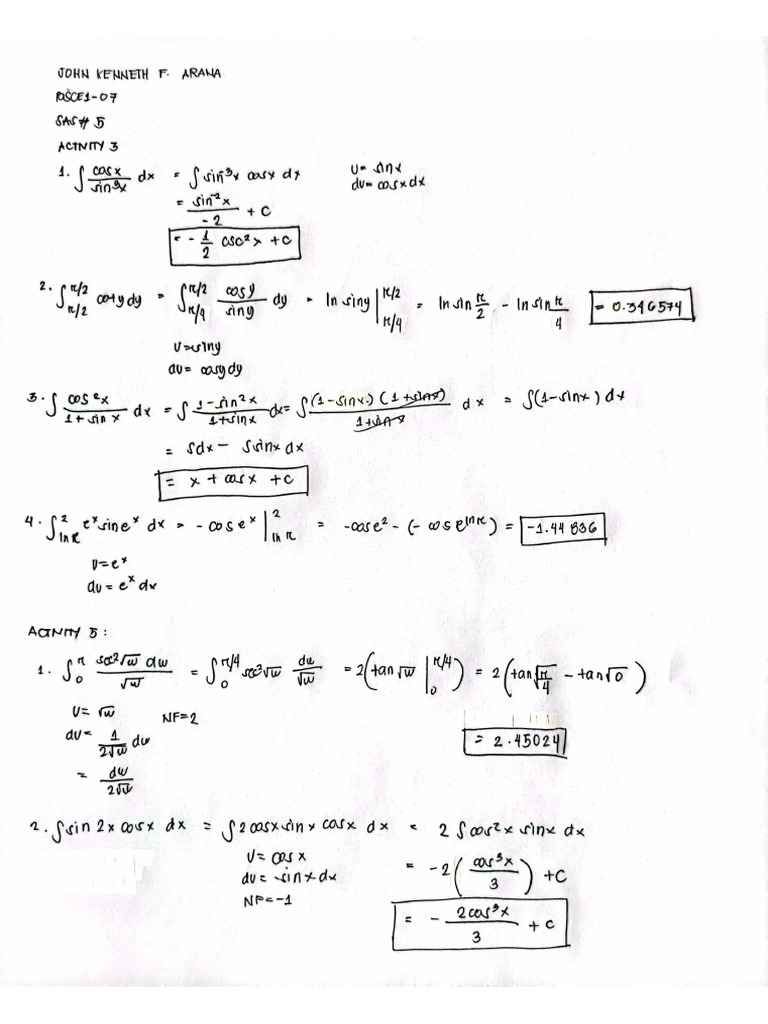 JOHN KENNETH F. ARANA
BSCE1-07
SAS# 5
ACTIVITY 3
1. ∫ cosx/sin³x dx = ∫ sin⁻³x cosx dx    u= sinx
du= cosxdx
= sin⁻²x/-2 + C
= - 1/2 csc²x + C
2. ∫π/2 π/2 cotydy = ∫π/4 π/2 cosy/siny dy = ln siny |π/4 π/2 = ln sin π/2 - ln sin π/4 = 0.346574
u=siny
du= cosydy
3. ∫ cos²x/1+sinx dx = ∫ 1-sin²x/1+sinx dx= ∫ (1-sinx)(1+sinx)/1+sinx dx = ∫(1-sinx)dx
= ∫dx - ∫sinxdx
= x + cosx + C
4. ∫lnπ 2 eˣsineˣ dx = -coseˣ |lnπ 2 = -cose² - (-cose^lnπ) = -1.44836
u=eˣ
du=eˣdx
ACTIVITY 5:
1. ∫0 π sec²√w dw/√w = ∫0 π/4 sec²√w dw/√w = 2(tan√w |0 π/4) = 2(tan√π/4 - tan√0)
u= √w    NF=2
du= 1/2√w dw    = 2.45024
= dw/2√w
2. ∫sin2xcosx dx = ∫2cosxsinx cosx dx = 2∫cos²x sinx dx
u= cosx    = -2(cos³x/3) +C
du= -sinxdx
NF=-1
= - 2cos³x/3 + C